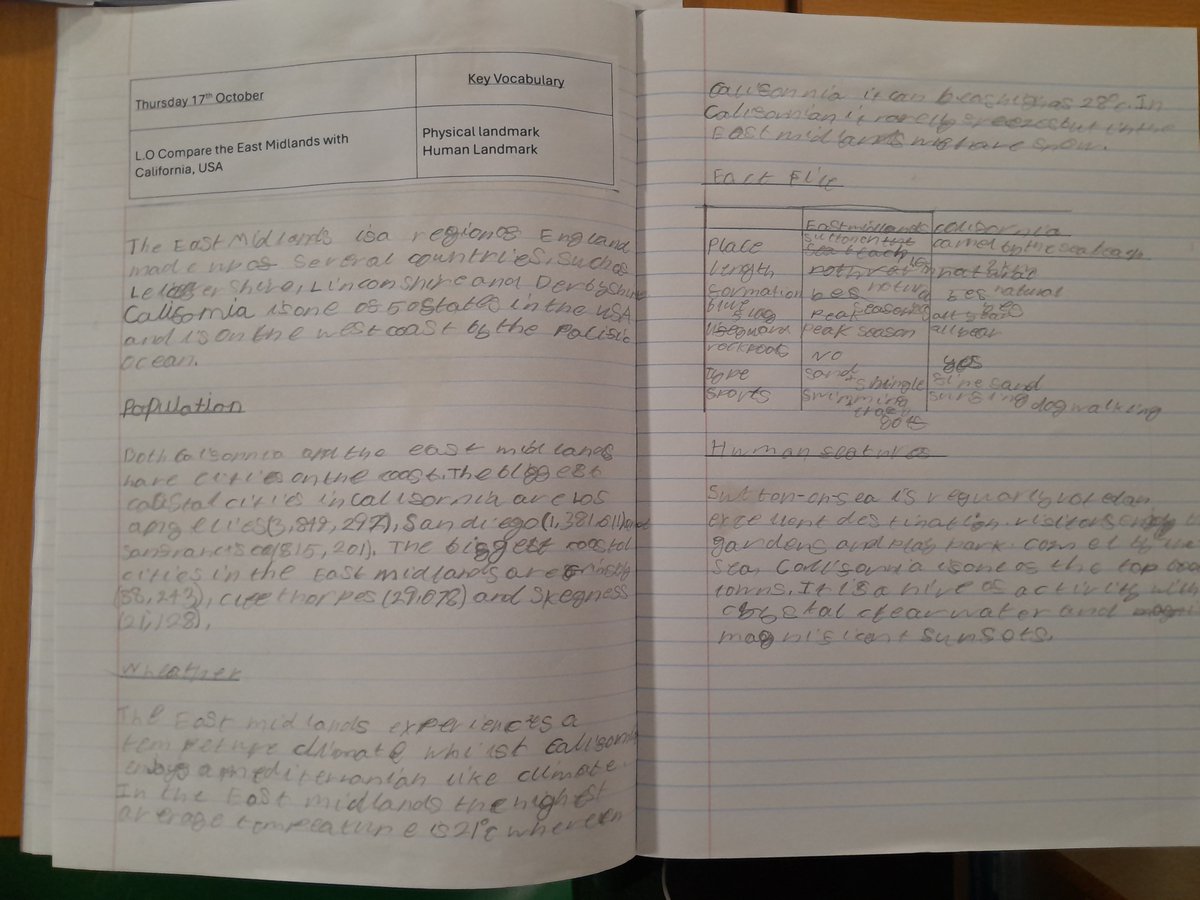 Thursday 17th October
Key Vocabulary
L.O Compare the East Midlands with
California, USA
Physical landmark
Human Landmark
The East Midlands is a region of England
made up of several countries, such as
Leicestershire, Linconshire and Derbyshire
California is one of 50 states in the USA
and is on the west coast by the Pacific
ocean.
Population
Both California and the east midlands
have cities on the coast. The biggest
coastal cities in california are los
angelies (3,849,297), San diego (1,381,611) and
sanfrancisco (815,201). The biggest coastal
cities in the East midlands are Grimsby
(88,243), cleethorpes (29,678) and Skegness
(21,128).
Wheather
The East midlands experiences a
tempeture climate whilst California
enjoys a mediterranian like climate.
In the East midlands the highest
average tempeature is 21°c where in
California it can be as high as 28°c. In
Californian it rarely freezes but in the
East midlands might have snow.
Fact File
East midlands california
Place Sutton on sea carmel by the sea beach
length
formation natural natural
blue flag Peak season all year
lifeguard peak season all year
rockpools NO yes
Type sand + shingle fine sand
Sports swimming surfing dog walking
Human features
Sutton-on-sea is regularly voted an
excellent destination. visitors enjoy
gardens and play park. carmel by the
sea, California is one of the top
towns. It is a hive of activity with
crystal clear water and
magnificant sunsets.